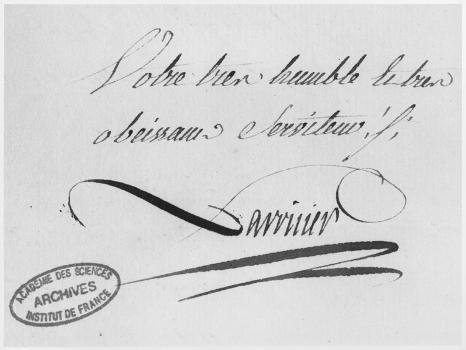 Votre tres humble et tres
obeissant Serviteur
Varinier
ACADÉMIE DES SCIENCES
ARCHIVES
INSTITUT DE FRANCE